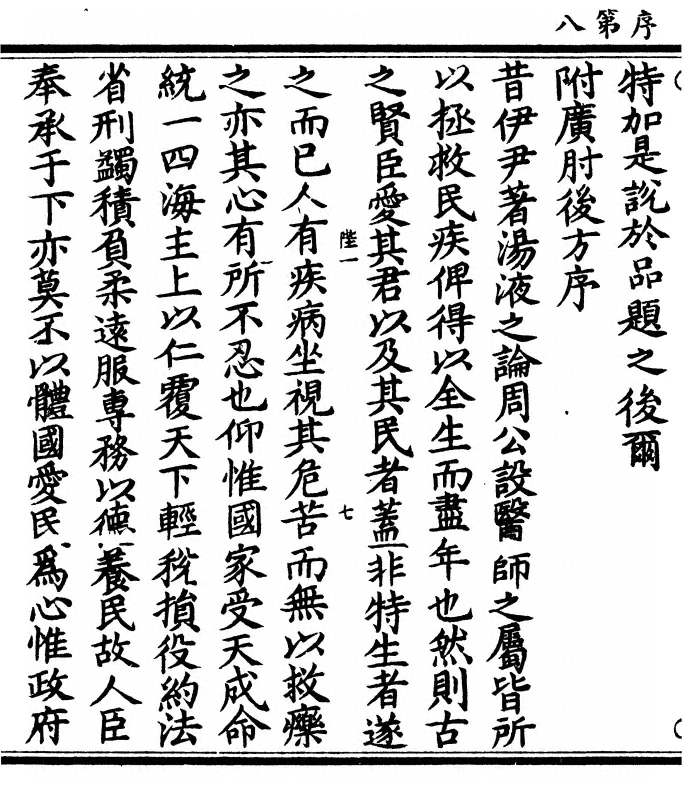 序第八
特加是説於品題之後爾
附廣肘後方序
昔伊尹著湯液之論周公設醫師之屬皆所
以拯救民疾俾得以全生而盡年也然則古
之賢臣愛其君以及其民者蓋非特生者遂
陛一
七
之而已人有疾病坐視其危苦而無以救療
之亦其心有所不忍也仰惟國家受天成命
統一四海主上以仁覆天下輕稅損役約法
省刑蠲積負柔遠服專務以德養民故人臣
奉承于下亦莫不以體國愛民為心惟政府